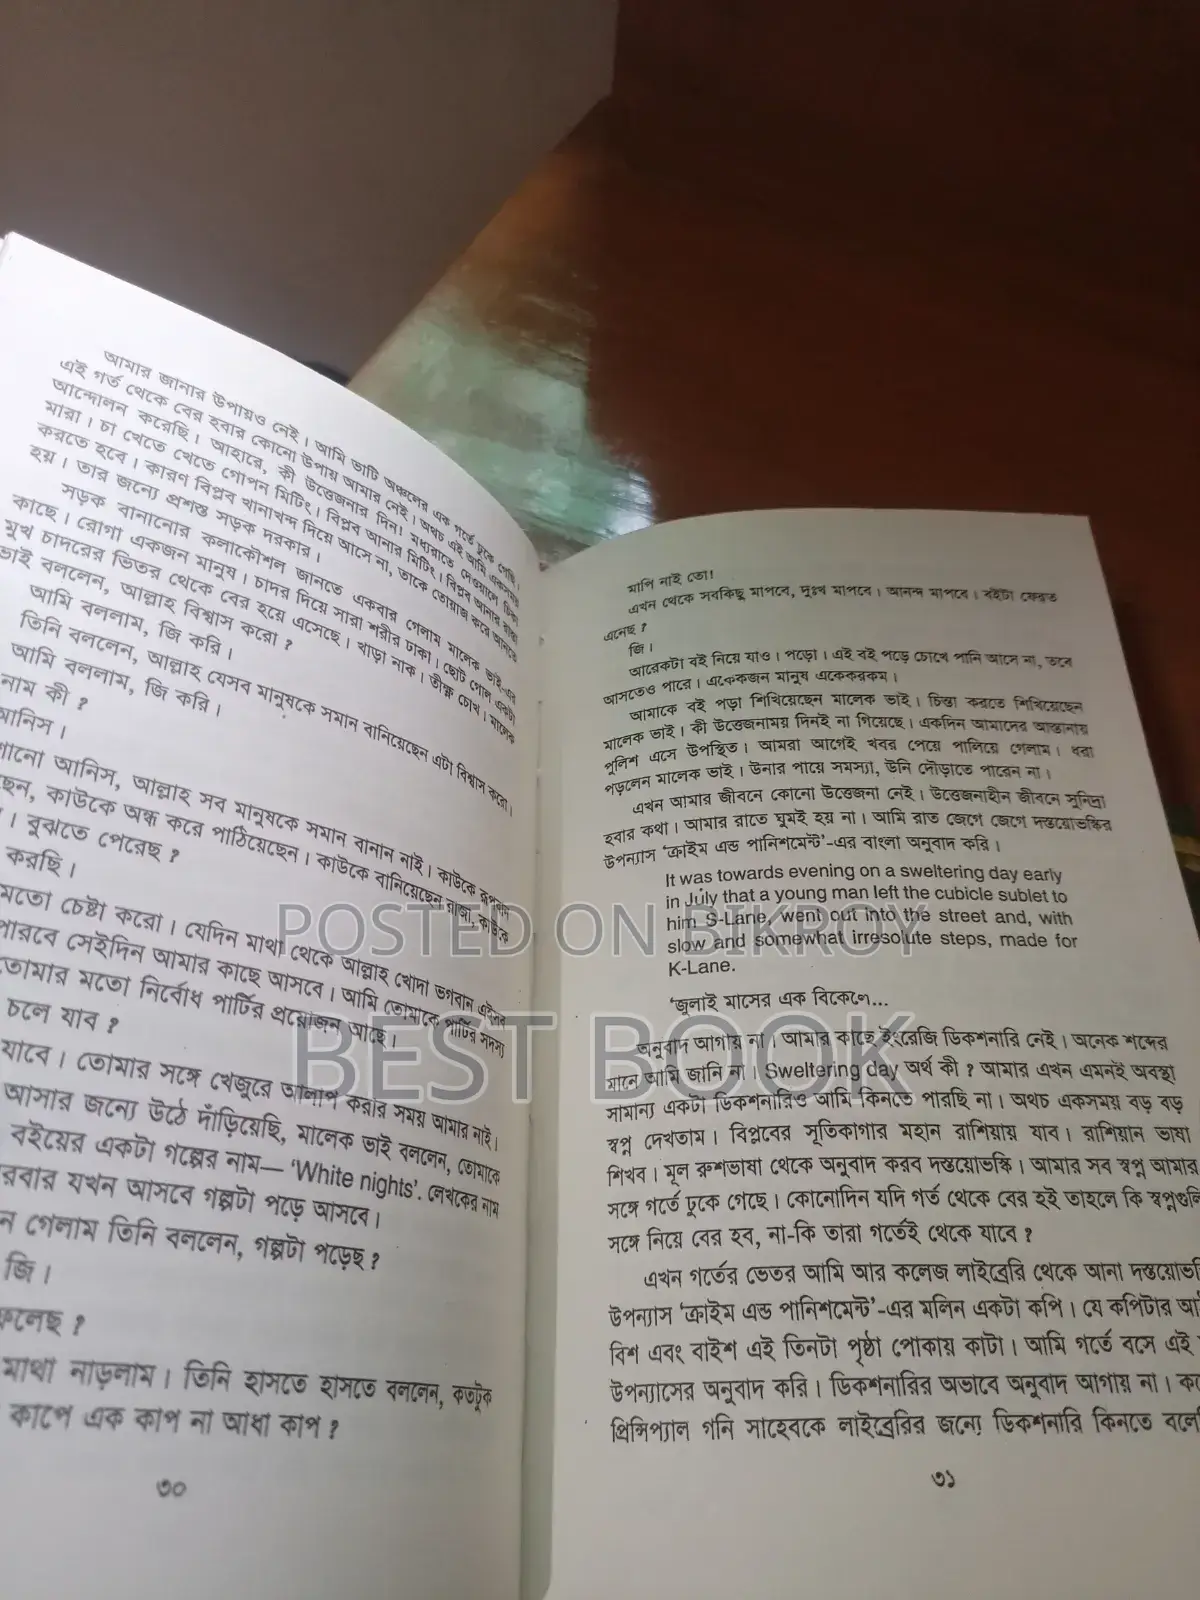 আমার জানার উপায়ও নেই। আমি ভাটি অঞ্চলের এক গর্তে ঢুকে গেছি।
এই গর্ত থেকে বের হবার কোনো উপায় আমার নেই। অথচ এই আমি একসময়
আন্দোলন করেছি। আহারে, কী উত্তেজনার দিন! মধ্যরাতে দেওয়ালে চিকা
মারা। চা খেতে খেতে গোপন মিটিং। বিপ্লব আনার মিটিং। বিপ্লব আনার রাস্তা
করতে হবে। কারণ বিপ্লব খানাখন্দ দিয়ে আসে না, তাকে তোয়াজ করে আনতে
হয়। তার জন্যে প্রশস্ত সড়ক দরকার।
সড়ক বানানোর কলাকৌশল জানতে একবার গেলাম মালেক ভাই-এর
কাছে। রোগা একজন মানুষ। চাদর দিয়ে সারা শরীর ঢাকা। ছোট গোল একটা
মুখ চাদরের ভিতর থেকে বের হয়ে এসেছে। খাড়া নাক। তীক্ষ্ণ চোখ। মালেক
ভাই বললেন, আল্লাহ বিশ্বাস করো?
আমি বললাম, জি করি।
তিনি বললেন, আল্লাহ যেসব মানুষকে সমান বানিয়েছেন এটা বিশ্বাস করো।
আমি বললাম, জি করি।
নাম কী?
আনিস।
শোনো আনিস, আল্লাহ সব মানুষকে সমান বানান নাই। কাউকে রূপবান
ছেন, কাউকে অন্ধ করে পাঠিয়েছেন। কাউকে বানিয়েছেন রাজা, কাউকে
। বুঝতে পেরেছ?
করছি।
মতো চেষ্টা করো। যেদিন মাথা থেকে আল্লাহ খোদা ভগবান এইসব
পারবে সেইদিন আমার কাছে আসবে। আমি তোমাকে পার্টির সদস্য
তোমার মতো নির্বোধ পার্টির প্রয়োজন আছে।
চলে যাব?
যাবে। তোমার সঙ্গে খেজুরে আলাপ করার সময় আমার নাই।
আসার জন্যে উঠে দাঁড়িয়েছি, মালেক ভাই বললেন, তোমাকে
বইয়ের একটা গল্পের নাম— 'White nights'. লেখকের নাম
রবার যখন আসবে গল্পটা পড়ে আসবে।
ন গেলাম তিনি বললেন, গল্পটা পড়েছ?
জি।
ফেলেছ?
মাথা নাড়লাম। তিনি হাসতে হাসতে বললেন, কতটুক
কাপে এক কাপ না আধা কাপ?
৩০
মাপি নাই তো!
এখন থেকে সবকিছু মাপবে, দুঃখ মাপবে। আনন্দ মাপবে। বইটা ফেরত
এনেছ?
জি।
আরেকটা বই নিয়ে যাও। পড়ো। এই বই পড়ে চোখে পানি আসে না, তবে
আসতেও পারে। একেকজন মানুষ একেকরকম।
আমাকে বই পড়া শিখিয়েছেন মালেক ভাই। চিন্তা করতে শিখিয়েছেন
মালেক ভাই। কী উত্তেজনাময় দিনই না গিয়েছে। একদিন আমাদের আস্তানায়
পুলিশ এসে উপস্থিত। আমরা আগেই খবর পেয়ে পালিয়ে গেলাম। ধরা
পড়লেন মালেক ভাই। উনার পায়ে সমস্যা, উনি দৌড়াতে পারেন না।
এখন আমার জীবনে কোনো উত্তেজনা নেই। উত্তেজনাহীন জীবনে সুনিদ্রা
হবার কথা। আমার রাতে ঘুমই হয় না। আমি রাত জেগে জেগে দস্তয়োভস্কির
উপন্যাস 'ক্রাইম এন্ড পানিশমেন্ট'-এর বাংলা অনুবাদ করি।
It was towards evening on a sweltering day early
in July that a young man left the cubicle sublet to
him S-Lane, went out into the street and, with
slow and somewhat irresolute steps, made for
K-Lane.
'জুলাই মাসের এক বিকেলে...
অনুবাদ আগায় না। আমার কাছে ইংরেজি ডিকশনারি নেই। অনেক শব্দের
মানে আমি জানি না। Sweltering day অর্থ কী? আমার এখন এমনই অবস্থা
সামান্য একটা ডিকশনারিও আমি কিনতে পারছি না। অথচ একসময় বড় বড়
স্বপ্ন দেখতাম। বিপ্লবের সূতিকাগার মহান রাশিয়ায় যাব। রাশিয়ান ভাষা
শিখব। মূল রুশভাষা থেকে অনুবাদ করব দস্তয়োভস্কি। আমার সব স্বপ্ন আমার
সঙ্গে গর্তে ঢুকে গেছে। কোনোদিন যদি গর্ত থেকে বের হই তাহলে কি স্বপ্নগুলি
সঙ্গে নিয়ে বের হব, না-কি তারা গর্তেই থেকে যাবে?
এখন গর্তের ভেতর আমি আর কলেজ লাইব্রেরি থেকে আনা দস্তয়োভস্কি
উপন্যাস 'ক্রাইম এন্ড পানিশমেন্ট'-এর মলিন একটা কপি। যে কপিটার
বিশ এবং বাইশ এই তিনটা পৃষ্ঠা পোকায় কাটা। আমি গর্তে বসে এই
উপন্যাসের অনুবাদ করি। ডিকশনারির অভাবে অনুবাদ আগায় না।
প্রিন্সিপ্যাল গনি সাহেবকে লাইব্রেরির জন্যে ডিকশনারি কিনতে
৩১
POSTED ON BIKROY
BEST BOOK